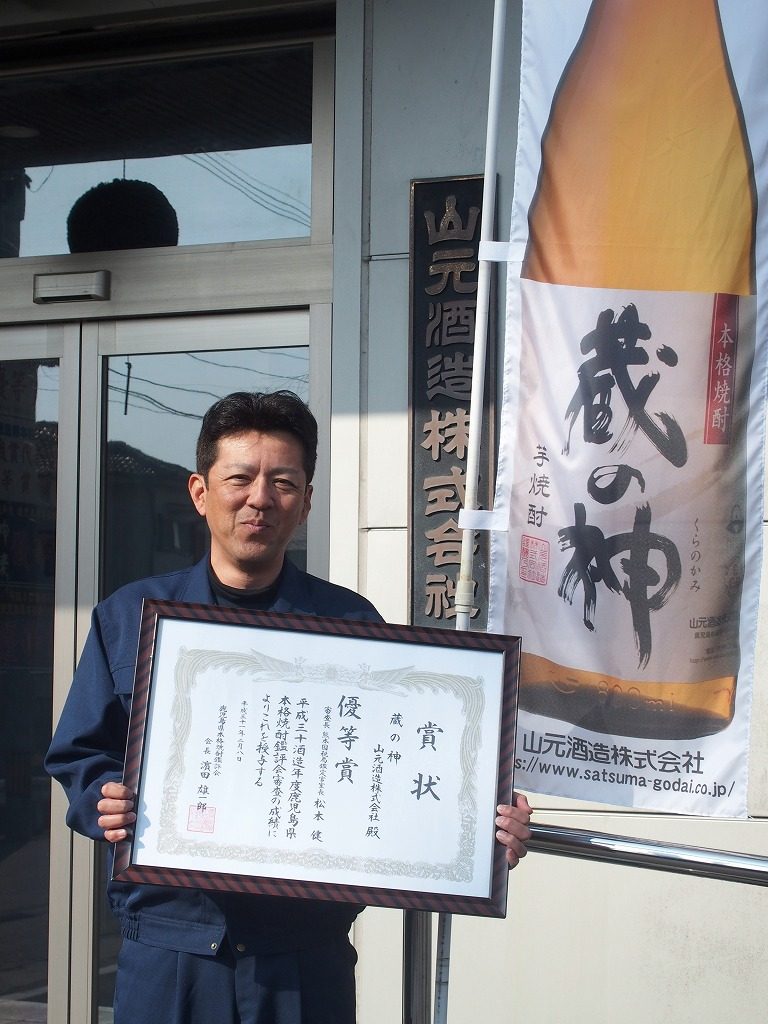 山元酒造株式会社
本格焼酎
蔵の神
芋焼酎
くらのかみ
山元酒造株式会社
s://www.satsuma-godai.co.jp/
賞状
蔵の神
山元酒造株式会社 殿
優等賞
審査長 熊本国税局鑑定官室長 松本 健
平成三十酒造年度鹿児島県
本格焼酎鑑評会審査の成績に
よりこれを授与する
平成三十一年二月八日
鹿児島県本格焼酎鑑評会
会長 濵田 雄一郎